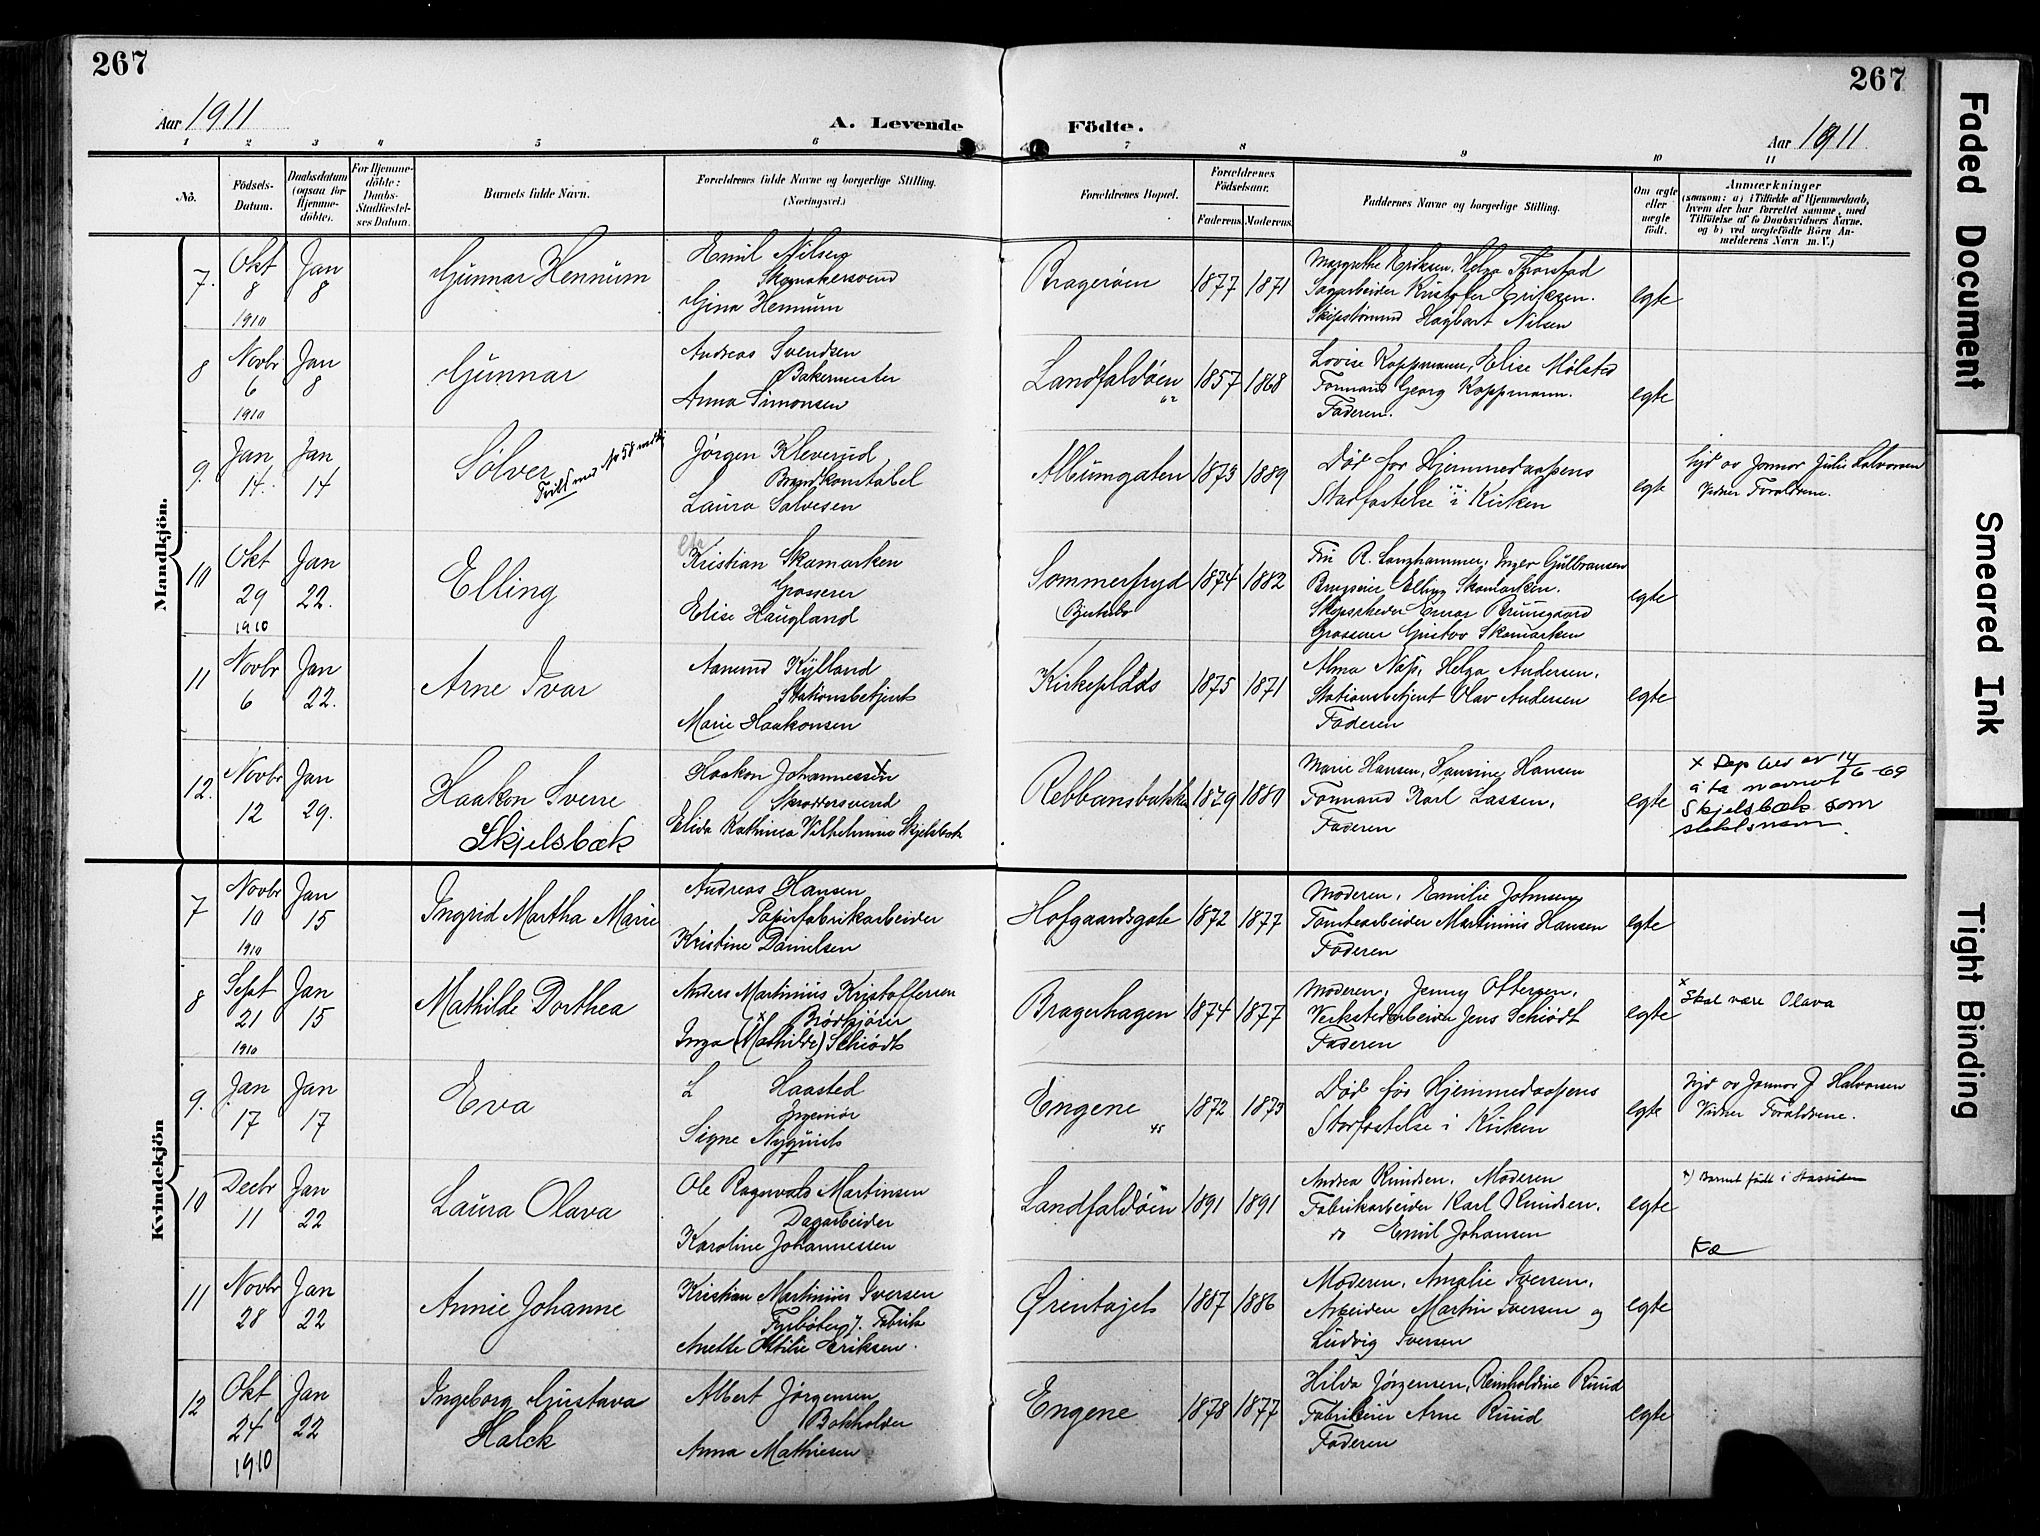 267
267
Aar 1911
A. Levende
Födte.
Aar 1911
1 2 3 4 5 6 7 8 9 10 11
Nö.
Födsels-
Datum.
Daabsdatum
(ogsaa for
Hjemme-
döbte).
For Hjemme-
döbte:
Daabs-
Stadfestel-
ses Datum.
Barnets fulde Navn.
Forældrenes fulde Navne og borgerlige Stilling.
(Næringsvei.)
Forældrenes Bopæl.
Forældrenes
Födselsaar.
Faderens Moderens
Faddernes Navne og borgerlige Stilling.
Om ægte
eller
uegte
födt.
Anmærkninger
(saasom: a) i Tilfælde af Hjemmedaab,
hvem der har forrettet samme, med
Tilföielse af to Daabsvidners Navne,
og b) ved uegtefödte Börn An-
melderens Navn m. V.)
Mandkjön.
7.
Okt
8
1910
Jan
8
Gunnar Hennum
Emil Nilsen
Skomakersvend
Gina Hennum
Bragerøen
1877
1871
Margrethe Eriksen, Helga Thorstad
Sagarbeider Kristofer Eriksen.
Skipstømmd Hagbart Nilsen
egte
8
Novbr
6
1910
Jan
8
Gunnar
Andreas Svendsen
Bakermester
Anna Simonsen
Landfaldøen
62
1857
1868
Lovise Koppmann, Elise Mølsted
Formand Georg Koppmann.
Faderen.
egte
9.
Jan
14.
Jan
14
Sølver
Tvill med No 58
Jørgen Kleverud
Brandkonstabel
Laura Salvesen
Albumgaten
1873
1889
Død før Hjemmedaapens
Stadfæstelse i Kirken
egte
Gjd av Jormor Julie Halvorsen
Vidner Forældrene.
10
Okt
29
1910
Jan
22.
Elling
Kristian Skamarken
Grosserer
Elise Haugland
Sommerfryd
1874
1882
Fru R. Langhammer, Inger Gulbransen
Elling Skamarken.
Einar Bruusgaard
Grosserer Gustav Skamarken
egte
11
Novbr
6
Jan
22.
Arne Ivar
Aanund Kylland
Stationsbetjent
Marie Haakonsen
Kirkeplads
1875
1871
Alma Næs, Helga Andersen,
Stationsbetjent Olav Andersen
Faderen
egte
12.
Novbr
12
Jan
29.
Haakon Sverre
Skjelsbæk
Haakon Johannessen x
Skræddersvend
Elida Kathrine Vilhelmine Skjelsbæk
Rebbansbakken
1879
1880
Marie Hansen, Hansine Hansen
Formand Karl Lassen,
Faderen
egte
x Dep bev av 14/6-69
å ta navnet
Skjelsbæk som
slektsnavn.
Kvindekjön
7
Novbr
10
1910
Jan
15
Ingrid Martha Marie
Andreas Hansen
Papirfabrikarbeider
Kristine Danielsen
Hofgaardsgate
1872
1877
Moderen, Emilie Johnsen,
Tomtearbeider Martinius Hansen
Faderen
egte
8
Sept
21
1910
Jan
15
Mathilde Dorthea
Anders Martinius Kristoffersen
Brødkjører
Inga (Mathilde) x Schiødt
Bragerhagen
1874
1877
Moderen, Jenny Ottersen,
Verkstedarbeider Jens Schiødt
Faderen
egte
x
Skal være Olava
9.
Jan
17
Jan
17
Eva
L Haasted
Ingeniør
Signe Nyquist
Engene
45
1872
1873
Død før Hjemmedaapens
Stadfæstelse i Kirken
egte
Gjd av Jormor J. Halvorsen
Vidner Forældrene.
10
Decbr
11
Jan
22
Laura Olava
Ole Ragnvald Martinsen
Dagarbeider
Karoline Johannessen
Landfaldøen
1891
1891
Andrea Knudsen, Moderen
Fabrikarbeider Karl Knudsen.
do Emil Johansen
egte
x) Barnet født i Aassiden
11
Novbr
28
Jan
22
Annie Johanne
Kristian Martinius Iversen
Fyrbøter v. Fabrik
Anette Ottilie Eriksen.
Ørentajet
1887
1886
Moderen, Amalie Iversen,
Arbeider Martin Iversen og
Ludvig Iversen
egte
12
Okt
24
1910
Jan
22
Ingeborg Gustava
Halck
Albert Jørgensen
Bokholder
Anna Mathiesen
Engene
1878
1877
Hilda Jørgensen, Reinholdine Ruud
Fabrikeier Arne Ruud
Faderen
egte
Faded Document
Smeared Ink
Tight Binding